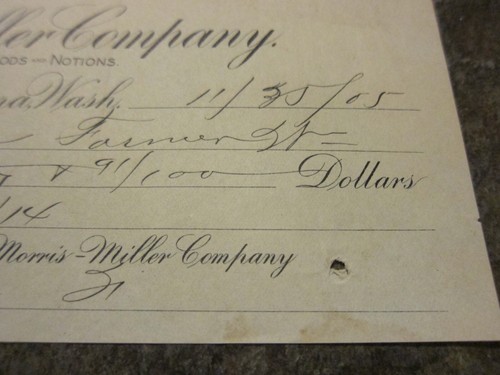 ller Company.
OODS AND NOTIONS.
na, Wash. 11/25/05
Farmer
& 91/100 Dollars
14
Morris-Miller Company